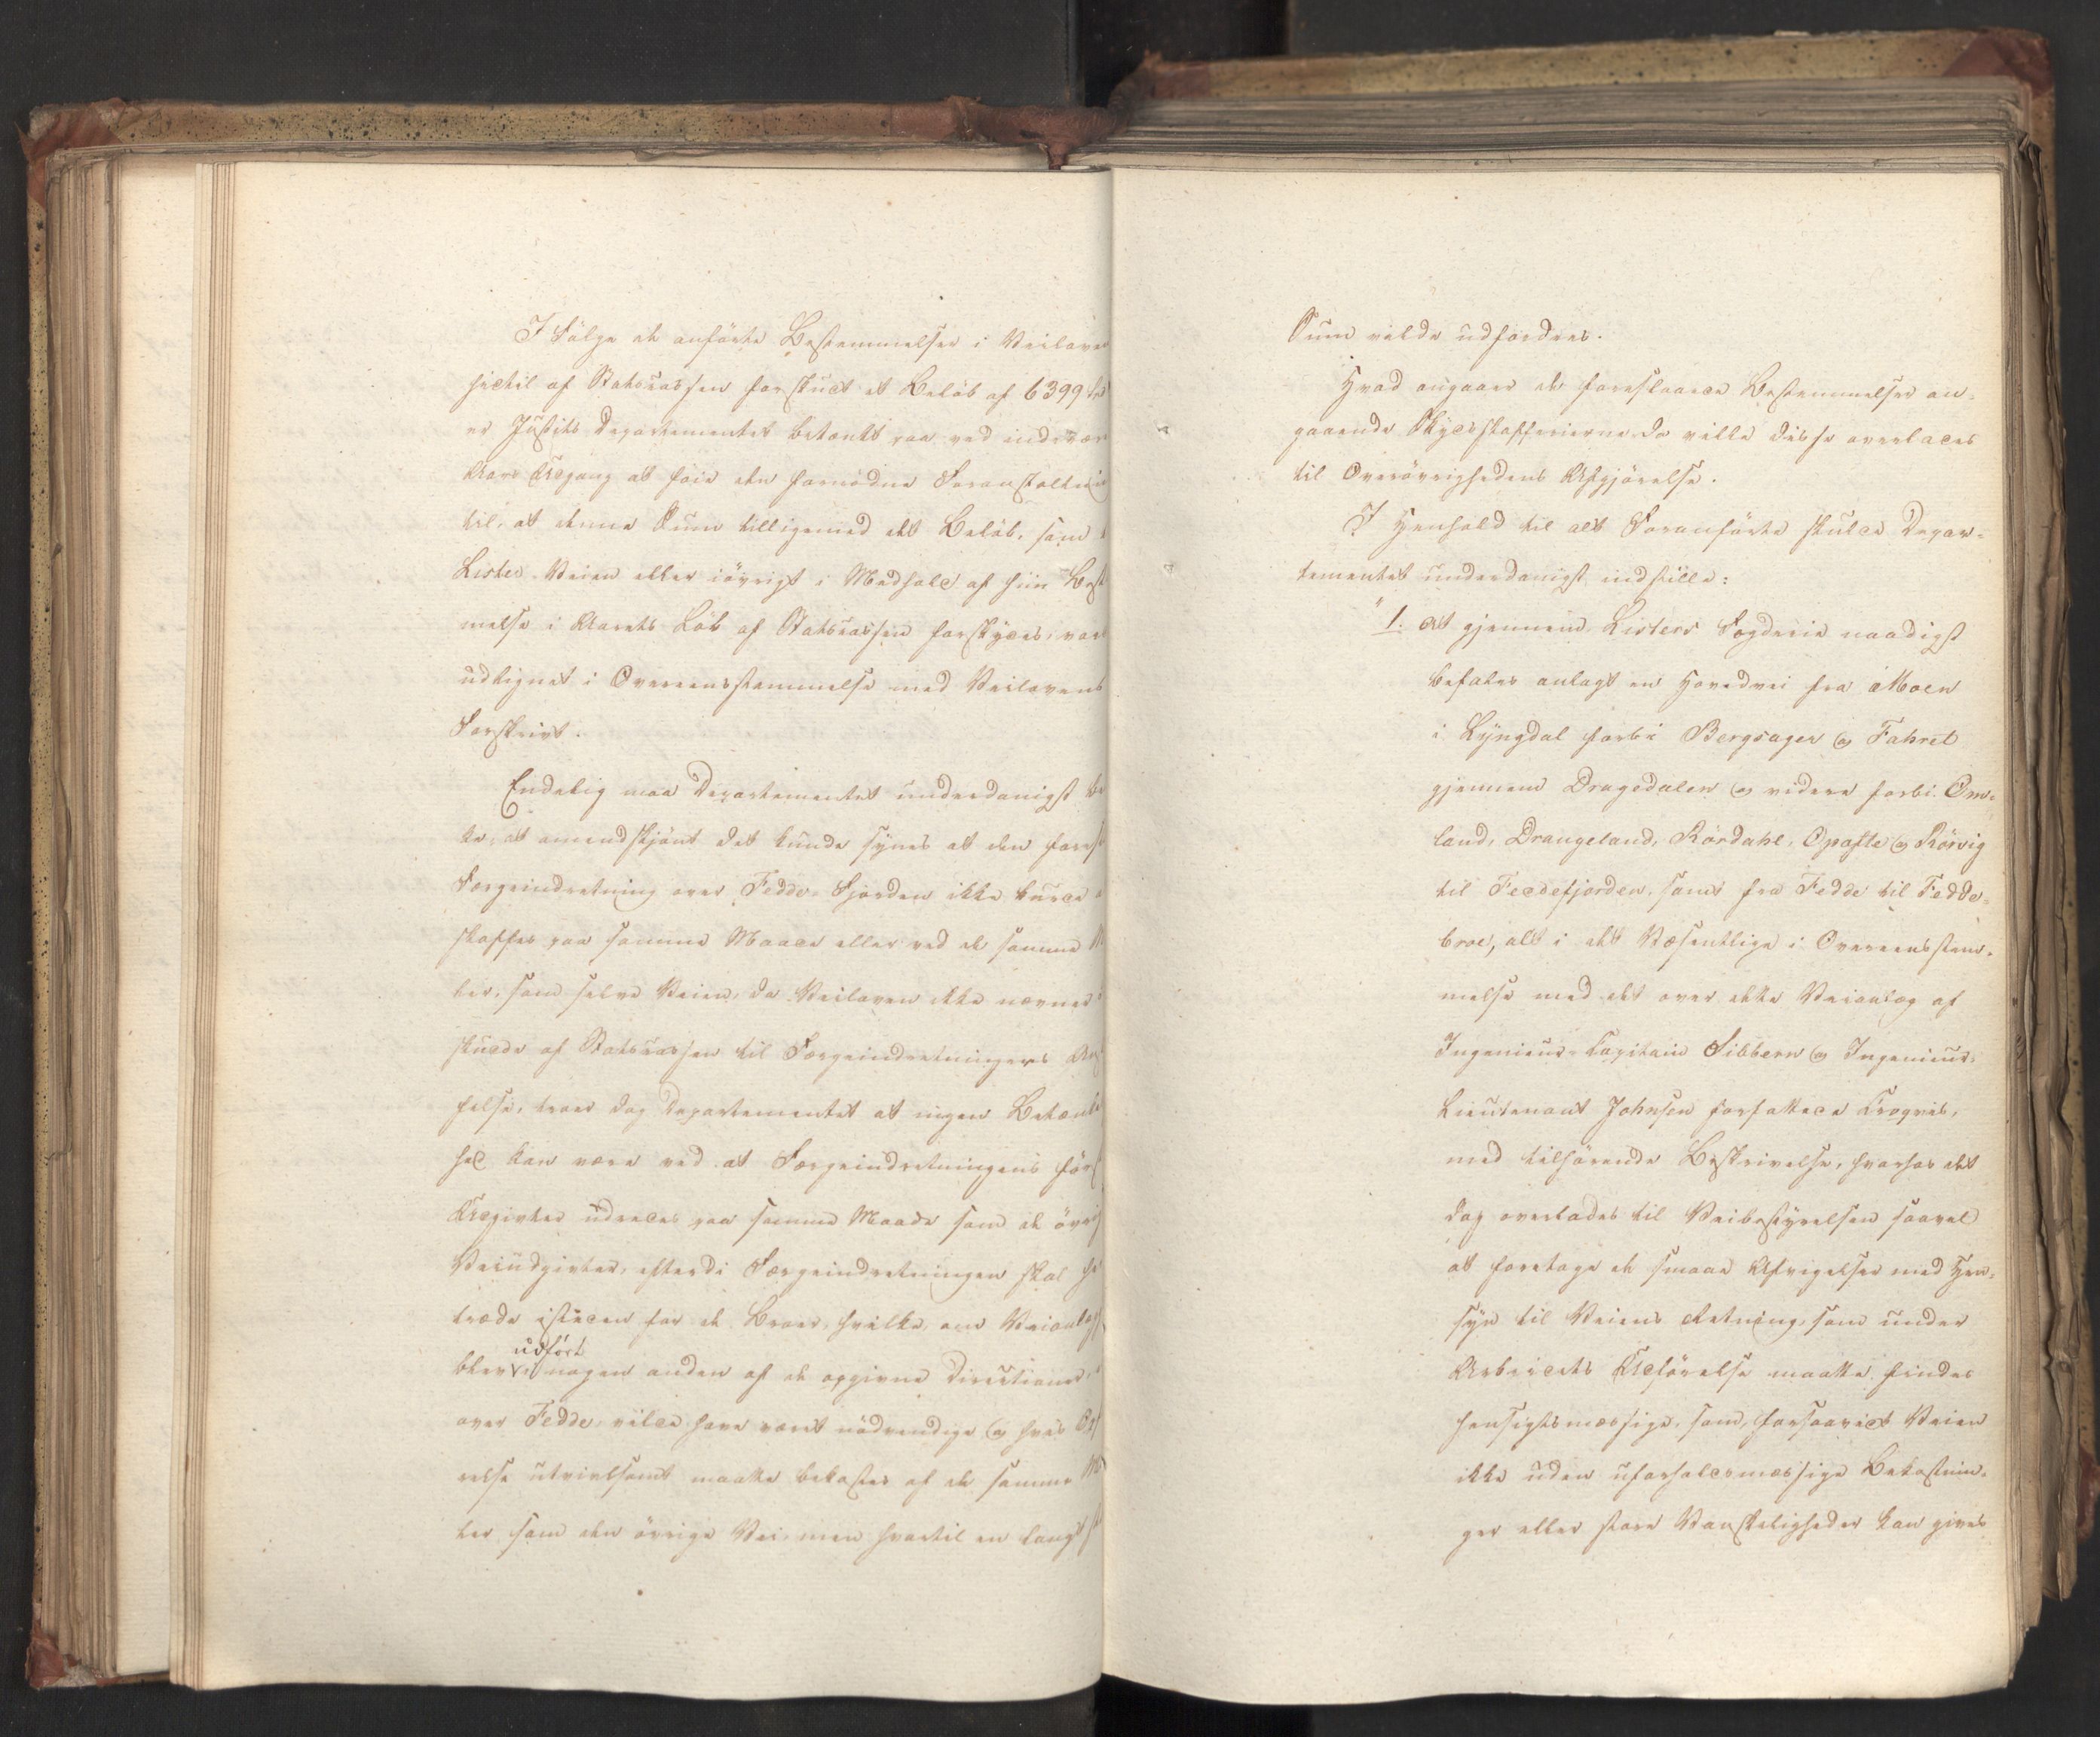 I Følge de anførte Bestemmelser i Veiloven
hidtil af Statscassen forskudt et Beløb af 6399
er Justits Departementet betænkt paa ved indevær
Aars Udgang at føie den fornødne Foranstaltnin
til, at denne Sum tilligemed det Beløb, som
Lister-Veien eller iøvrigt i Medhold af hiin Best
melse i Aarets Løb af Statscassen forskydes, vor
udlignet i Overeensstemmelse med Veilovens
Forskrivt.
Endelig maa Departementet underdanigst be
ke, at omendskjønt det kunde synes at den forest
Færgeindretning over Fedde-Fjorden ikke burde
skaffes paa samme Maade eller ved de samme M
ler, som selve Veien, da Veiloven ikke nævner
skudde af Statscassen til Færgeindretningers An
felse, troer dog Departementet at ingen Betænke
hed kan være ved at Færgeindretningens før
Udgivter udredes paa samme Maade som de øvri
Veiudgivter, efterdi Færgeindretningen skal
træde istæden for de Broer, hvilke, om Veianlæg
udført
blev i nogen anden af de opgivne Directioner,
over Fedde, vilde have været nødvendige og hvis Op
relse utvivlsomt maatte bekostes af de samme Mi
ler som den øvrige Vei, men hvortil en langt st
Sum vilde udfordres.
Hvad angaaer de foreslaaede Bestemmelser an-
gaaende Skydsskafferierne da ville disse overlades
til Overøvrighedens Afgjørelse.
I Henhold til alt Foranførte skulde Depar-
tementet underdanigst indstille:
" 1. At gjennem Listers Fogderie naadigst
befales anlagt en Hovedvei fra Moen
i Lyngdal forbi Bergsager og Fahret
gjennem Dragedalen og videre forbi Om-
land, Drangeland, Rørdahl, Opofte og Rørvig
til Feddefjorden, samt fra Fedde til Fedde-
broe, alt i det Væsentlige i Overeensstem-
melse med det over dette Veianlæg af
Ingenieur-Capitain Sibbern og Ingenieur-
Lieutenant Johnsen forfattede Croqvis,
med tilhørende Beskrivelse, hvorhos det
dog overlades til Veibestyrelsen saavel
at foretage de smaae Afvigelser med Hen-
syn til Veiens Retning, som under
Arbeidets Udførelse maatte findes
hensigtsmæssige, som, forsaavidt Veien
ikke uden uforholdsmæssige Bekostnin-
ger eller store Vanskeligheder kan gives